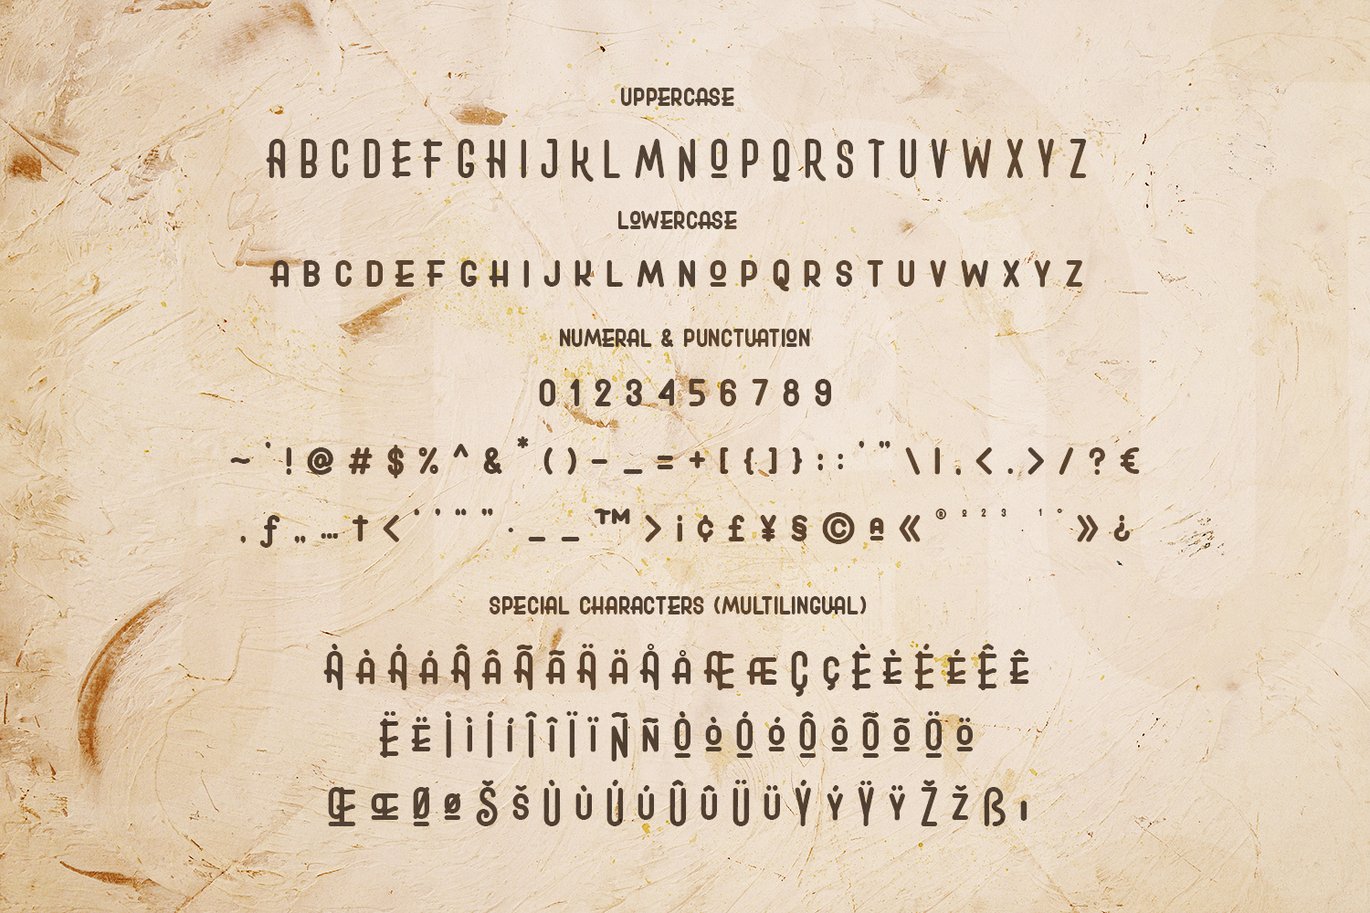 UPPERCASE
ABCDEFGHIJKLMNOPQRSTUVWXYZ
LOWERCASE
ABCDEFGHIJKLMNOPQRSTUVWXYZ
NUMERAL & PUNCTUATION
0123456789
~ ` ! @ # $ % ^ & * ( ) - _ = + [ { ] } : : ' " \ | , < . > / ? €
‚ ƒ „ … † ‹ ‘ ’ “ ” · – — ™ › ¡ ¢ £ ¥ § © ª « ® º ² ³ ¹ ° » ¿
SPECIAL CHARACTERS (MULTILINGUAL)
ÀàÁáÂâÃãÄäÅåÆæÇçÈèÉéÊê
ËëÌìÍíÎîÏïÑñÒòÓóÔôÕõÖö
ŒœØøŠšÙùÚúÛûÜüÝýŸÿŽžßı